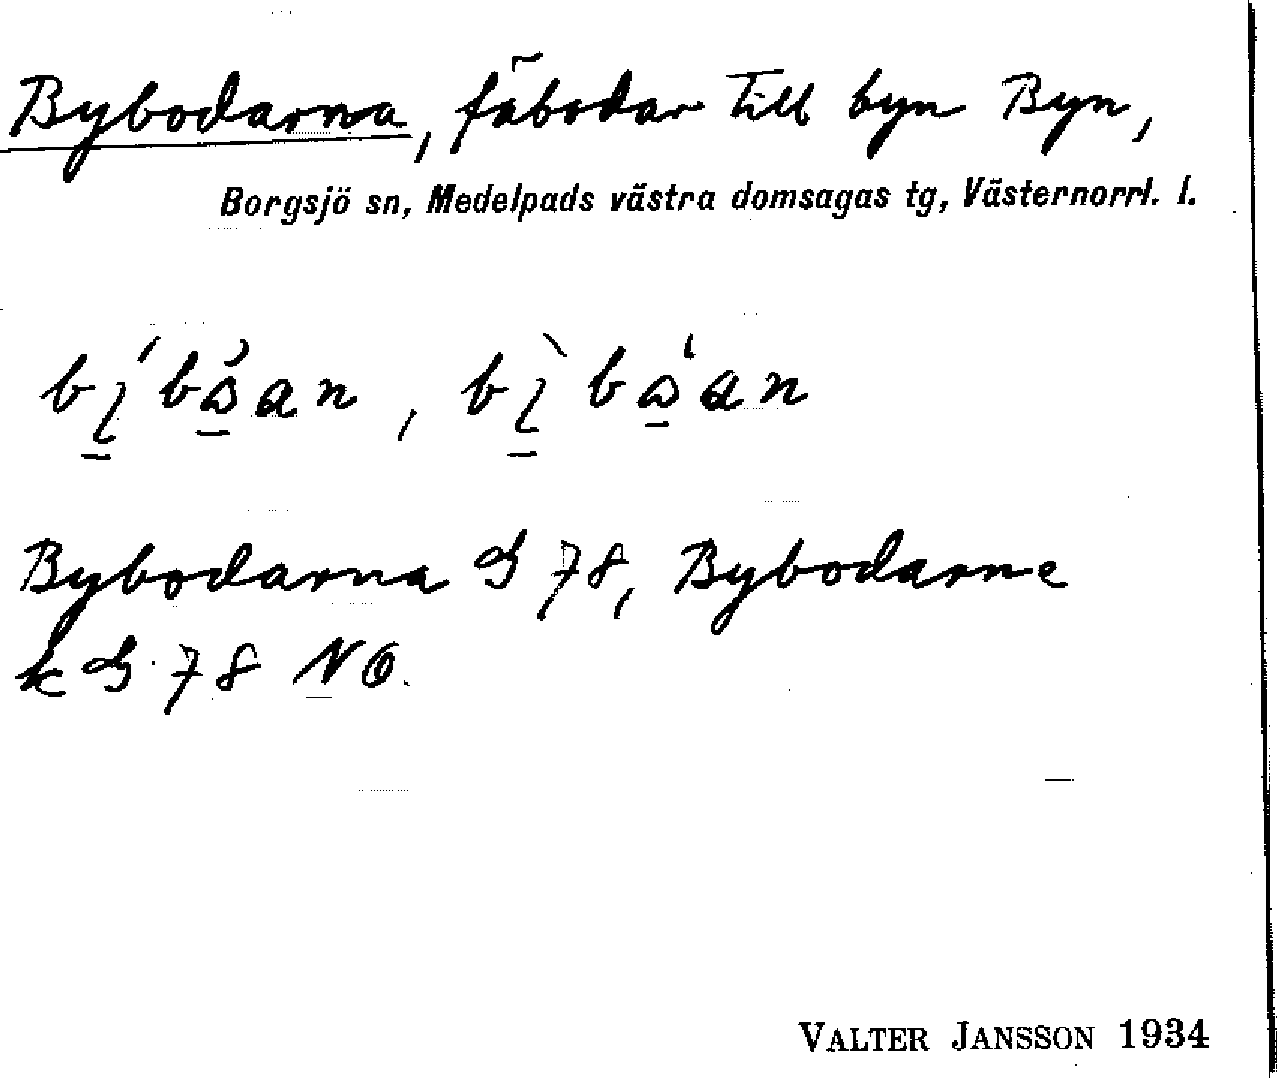 Bybodarna, fäbodar till byn Byn,
Borgsjö sn, Medelpads västra domsagas tg, Västernorrl. l.
Bybodarna G 78, Bybodarne
k G 78 NO.
VALTER JANSSON 1934